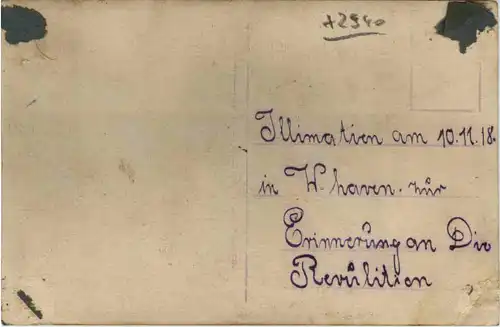 A2940
Illimatien am 10.11.18.
in W-haven. zür
Erinnerüng an Die
Revülitien